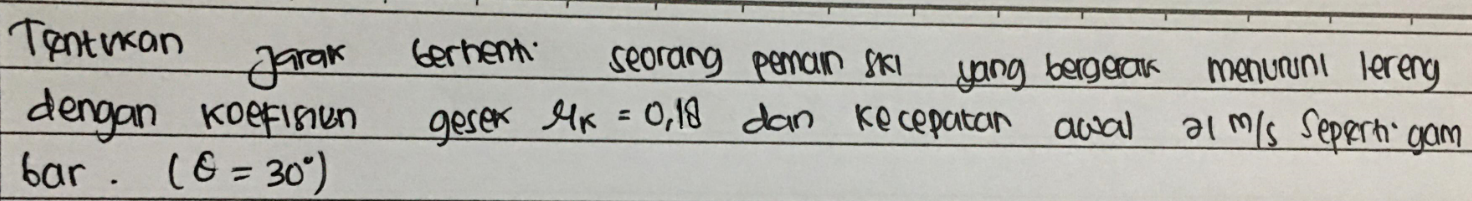 Tentukan jarak berhenti seorang pemain ski yang bergerak menuruni lereng
dengan koefisien gesek μk = 0,18 dan kecepatan awal 21 m/s seperti gam
bar. (θ = 30°)